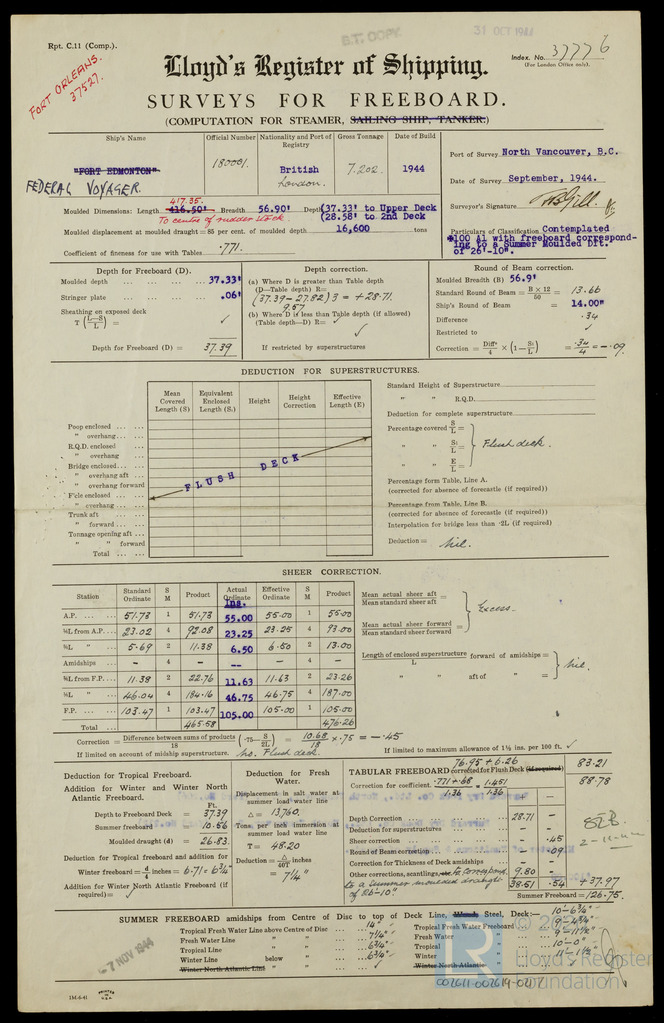 Rpt. C.11 (Comp.).
B.T. COPY
31 OCT 1944
Index. No. 37776
(For London Office only).
FORT ORLEANS.
37527.
Lloyd's Register of Shipping.
SURVEYS FOR FREEBOARD.
(COMPUTATION FOR STEAMER, SAILING SHIP, TANKER.)
Ship's Name
Official Number
Nationality and Port of Registry
Gross Tonnage
Date of Build
"FORT EDMONTON"
FEDERAL VOYAGER.
180001.
British
London.
7,202.
1944
Port of Survey North Vancouver, B.C.
Date of Survey September, 1944.
Surveyor's Signature
Particulars of Classification Contemplated
*100 A1 with freeboard correspond-
ing to a Summer Moulded Dft.
of 26'-10".
417.35.
Moulded Dimensions: Length 416.50' Breadth 56.90' Depth (37.33' to Upper Deck
(28.58' to 2nd Deck
To centre of rudder stock
Moulded displacement at moulded draught = 85 per cent. of moulded depth 16,600 tons
Coefficient of fineness for use with Tables .771.
Depth for Freeboard (D).
Moulded depth 37.33'
Stringer plate .06'
Sheathing on exposed deck
T (L—S / L) = ✓
Depth for Freeboard (D) = 37.39
Depth correction.
(a) Where D is greater than Table depth
(D—Table depth) R=
(37.39 - 27.82) 3 = + 28.71.
9.57
(b) Where D is less than Table depth (if allowed)
(Table depth—D) R= ✓
If restricted by superstructures
Round of Beam correction.
Moulded Breadth (B) 56.9'
Standard Round of Beam = B × 12 / 50 = 13.66
Ship's Round of Beam = 14.00"
Difference .34
Restricted to ✓
Correction = Diff. / 4 × (1 — S₁ / L) = .34 / 4 = - .09.
DEDUCTION FOR SUPERSTRUCTURES.
Mean Covered Length (S)
Equivalent Enclosed Length (S₁)
Height
Height Correction
Effective Length (E)
Poop enclosed
" overhang
R.Q.D. enclosed
" overhang
Bridge enclosed
" overhang aft
" overhang forward
F'cle enclosed
" overhang
Trunk aft
" forward
Tonnage opening aft
" " forward
Total
FLUSH DECK
Standard Height of Superstructure
" " R.Q.D.
Deduction for complete superstructure
Percentage covered S / L =
" " S₁ / L = Flush deck.
" " E / L =
Percentage form Table, Line A.
(corrected for absence of forecastle (if required))
Percentage from Table, Line B.
(corrected for absence of forecastle (if required))
Interpolation for bridge less than ·2L (if required)
Deduction = Nil.
SHEER CORRECTION.
Station | Standard Ordinate | S M | Product | Actual Ordinate Ins. | Effective Ordinate | S M | Product
A.P. 51.73 1 51.73 55.00 55.00 1 55.00
⅙L from A.P. 23.02 4 92.08 23.25 23.25 4 93.00
⅓L " 5.69 2 11.38 6.50 6.50 2 13.00
Amidships - 4 - - - 4 -
⅙L from F.P. 11.38 2 22.76 11.63 11.63 2 23.26
⅓L " 46.04 4 184.16 46.75 46.75 4 187.00
F.P. 103.47 1 103.47 105.00 105.00 1 105.00
Total 465.58 476.26
Mean actual sheer aft / Mean standard sheer aft =
Excess.
Mean actual sheer forward / Mean standard sheer forward =
Length of enclosed superstructure / L forward of amidships =
Nil.
" " aft of " =
Correction = Difference between sums of products / 18 (·75— S / 2L) = 10.68 / 18 × .75 = - .45
If limited on account of midship superstructure. No. Flush deck.
If limited to maximum allowance of 1½ ins. per 100 ft. ✓
Deduction for Tropical Freeboard.
Addition for Winter and Winter North Atlantic Freeboard.
Ft.
Depth to Freeboard Deck = 37.39
Summer freeboard = 10.56
Moulded draught (d) = 26.83
Deduction for Tropical freeboard and addition for
Winter freeboard = d / 4 inches = 6.71 = 6¾"
Addition for Winter North Atlantic Freeboard (if required) = ✓
Deduction for Fresh Water.
Displacement in salt water at summer load water line
△ = 13,760.
Tons per inch immersion at summer load water line
T = 48.20
Deduction = △ / 40T inches
= 7¼"
76.95 + 6.26
TABULAR FREEBOARD corrected for Flush Deck (if required) 83.21
Correction for coefficient. .771 + .68 / 1.36 1.451 / 1.36 88.78
+ —
Depth Correction 28.71 —
Deduction for superstructures — —
Sheer correction — .45
Round of Beam correction — .09
Correction for Thickness of Deck amidships — —
Other corrections, scantlings, to correspond 9.80 —
to a Summer moulded draught
of 26'-10"
38.51 .54 + 37.97
Summer Freeboard = 126.75.
SUMMER FREEBOARD amidships from Centre of Disc to top of Deck Line, Wood, Steel, Deck:— 10'-6¾"
Tropical Fresh Water Line above Centre of Disc 14"
Fresh Water Line " " 7¼"
Tropical Line " " 6¾"
Winter Line below " 6¾"
Winter North Atlantic Line " " ✓
Tropical Fresh Water Freeboard 9'-4¾"
Fresh Water " 9'-11½"
Tropical " 10'-0"
Winter " 11'-1½"
Winter North Atlantic " ✓
-7 NOV 1944
1M-6-41
PRINTED IN U.S.A.
Lloyd's Register
Foundation
002611-002614-0217